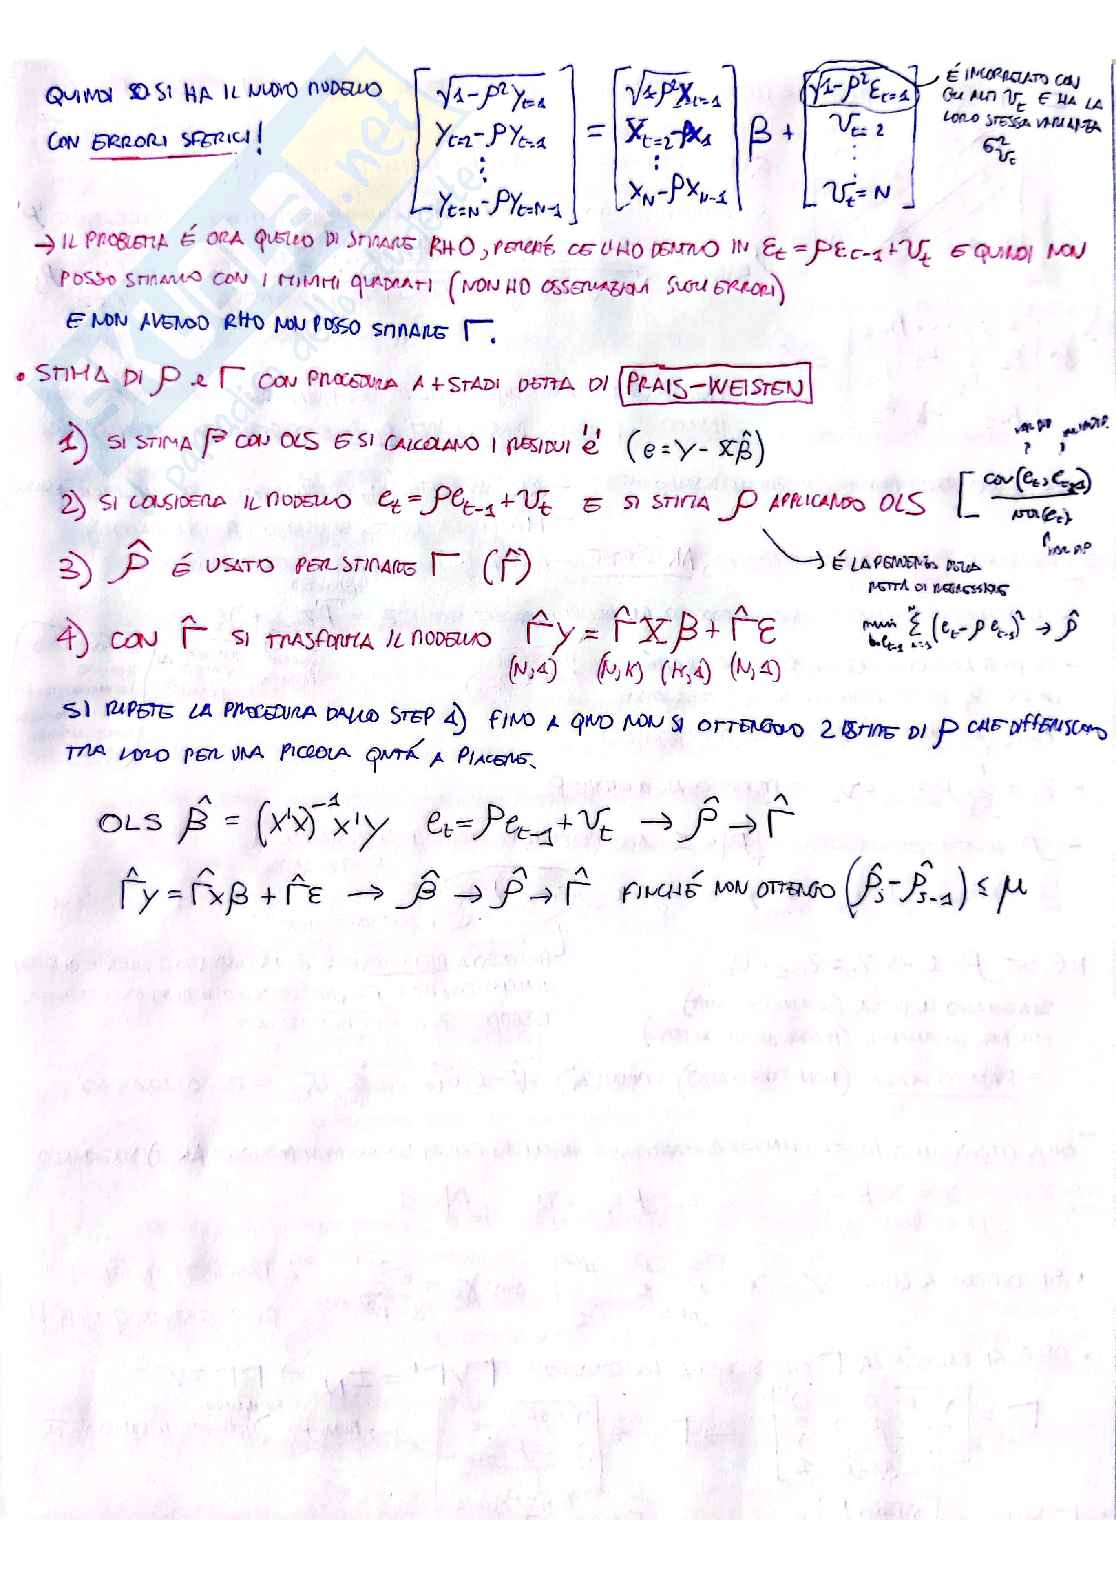 QUINDI SO SI HA IL NUOVO MODELLO
CON ERRORI SFERICI!
[√1-ρ² Yt=1
Yt=2 - ρYt=1
⋮
Yt=N - ρYt=N-1] = [√1-ρ² Xt=1
Xt=2 - ρX1
⋮
XN - ρXN-1] β + [√1-ρ² εt=1
Vt=2
⋮
Vt=N]
É INCORRELATO CON
GLI ALTI Vt E HA LA
LORO STESSA VARIANZA
σ²Vt
→ IL PROBLEMA É ORA QUELLO DI STIMARE RHO, PERCHÉ CE L'HO DENTRO IN εt = ρεt-1 + Vt E QUINDI NON
POSSO STIMARLO CON I MINIMI QUADRATI (NON HO OSSERVAZIONI SUGLI ERRORI)
E NON AVENDO RHO NON POSSO STIMARE Γ.
• STIMA DI ρ e Γ CON PROCEDURA A + STADI DETTA DI PRAIS-WEISTEN
1) SI STIMA β CON OLS E SI CALCOLANO I RESIDUI "e" (e = Y - Xβ̂)
2) SI CONSIDERA IL MODELLO et = ρet-1 + Vt E SI STIMA ρ APPLICANDO OLS [cov(et, et-1) / var(et)
→ É LA PENDENZA DELLA
RETTA DI REGRESSIONE
3) ρ̂ É USATO PER STIMARE Γ (Γ̂)
Σ (et - ρet-1)² → ρ̂
4) CON Γ̂ SI TRASFORMA IL MODELLO Γ̂y = Γ̂Xβ + Γ̂ε
(N,1) (N,K) (K,1) (N,1)
SI RIPETE LA PROCEDURA DALLO STEP 1) FINO A QNO NON SI OTTENGONO 2 STIME DI ρ CHE DIFFERISCONO
TRA LORO PER UNA PICCOLA QNTÁ A PIACERE.
OLS β̂ = (X'X)⁻¹X'Y et = ρet-1 + Vt → ρ̂ → Γ̂
Γ̂y = Γ̂xβ + Γ̂ε → β̂ → ρ̂ → Γ̂ FINCHÉ NON OTTENGO (ρ̂s - ρ̂s-1) ≤ μ